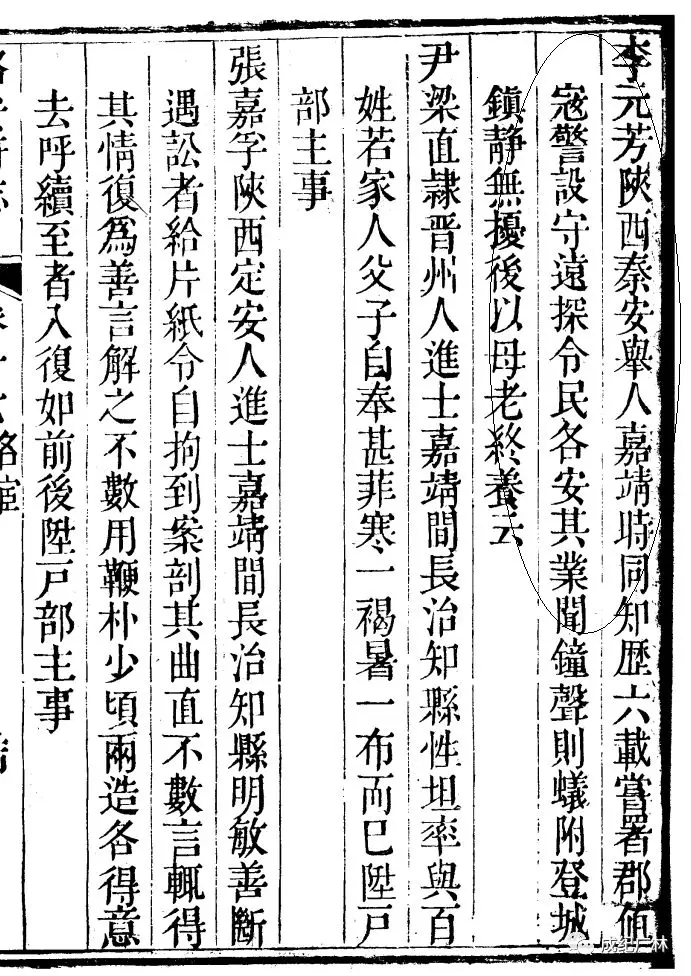 李元芳陝西秦安舉人嘉靖時同知歷六載嘗署郡值
寇警設守遠探令民各安其業聞鐘聲則蟻附登城
鎮靜無擾後以母老終養云
尹梁直隷晉州人進士嘉靖間長治知縣性坦率與百
姓若家人父子自奉甚菲寒一褐暑一布而已陞戸
部主事
張嘉孚陝西定安人進士嘉靖間長治知縣明敏善斷
遇訟者給片紙令自拘到案剖其曲直不數言輒得
其情復爲善言解之不數用鞭朴少頃兩造各得意
去呼續至者入復如前後陞戸部主事
成紀尸林